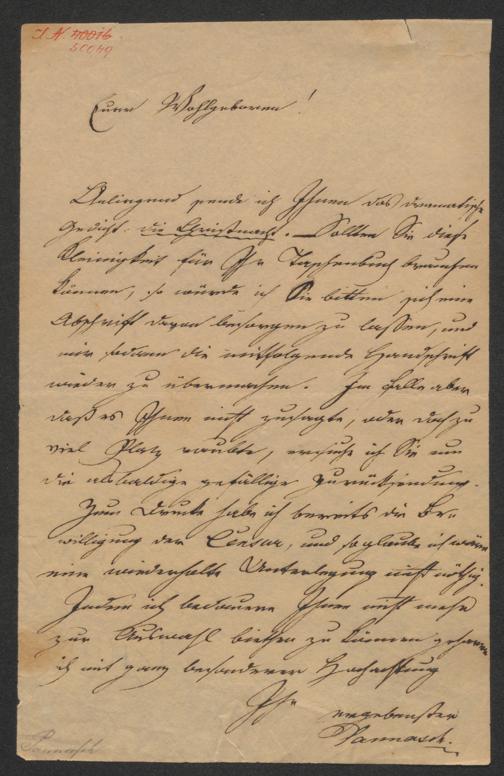 I. N. 40016
50049
Euer Wohlgeboren!
Anliegend sende ich Ihnen das dramatische
Gedicht: die Christnacht. – Sollten Sie diese
Kleinigkeit für Ihr Taschenbuch brauchen
können, so würde ich Sie bitten sich eine
Abschrift davon besorgen zu lassen, und
mir sodann die mitfolgende Handschrift
wieder zu übermachen. Im Falle aber
daß es Ihnen nicht zusagte, oder doch zu
viel Platz raubte, ersuche ich Sie um
die alsbaldige gefällige Zurücksendung.
Zum Drucke habe ich bereits die Be-
willigung der Censur, und so glaube ich wäre
eine wiederholte Unterlegung nicht nöthig.
Indem ich bedauere Ihnen nicht mehr
zur Auswahl biethen zu können geharre
ich mit ganz besonderer Hochachtung
Ihr ergebenster
Pannasch.
Pannasch